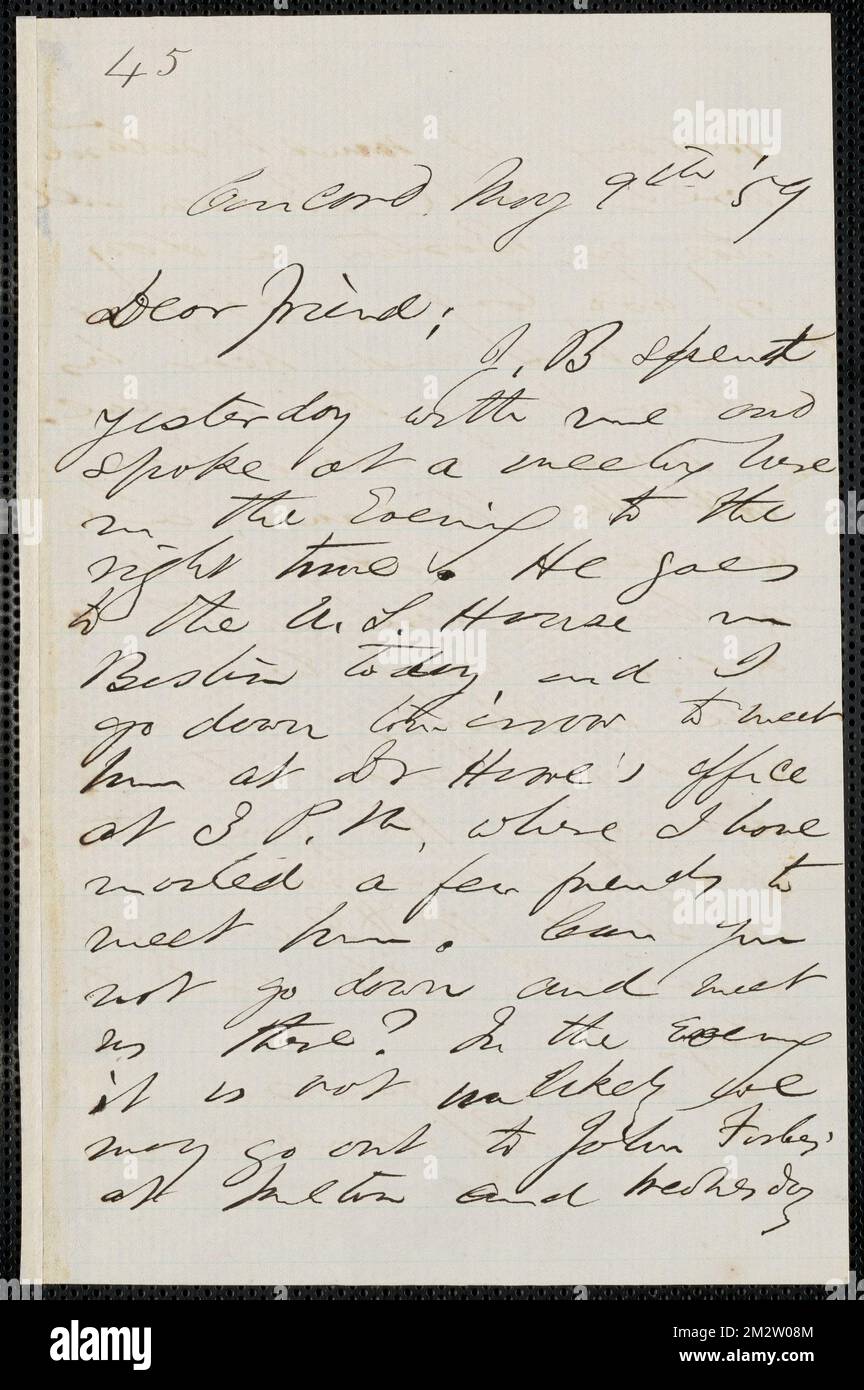 45
Concord May 9th '59
Dear friend;
J. B spent
yesterday with me and
spoke at a meeting here
in the Evening to the
right tune. He goes
to the U.S. House in
Boston today, and I
go down tomorrow to meet
him at Dr Howe's office
at 3 P.M, where I have
invited a few friends to
meet him. Can you
not go down and meet
us there? In the Evening
it is not unlikely we
may go out to John Forbes'
at Milton and Wednesday
alamy
Image ID: 2M2W08M
www.alamy.com